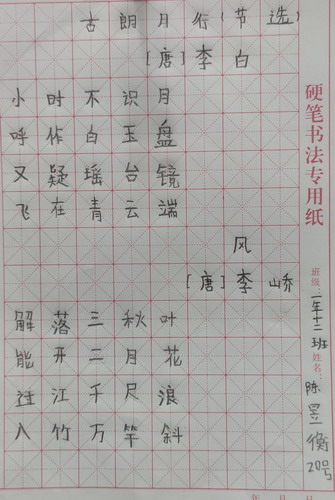 古朗月行(节选)
[唐]李白
小时不识月
呼作白玉盘
又疑瑶台镜
飞在青云端
风
[唐]李峤
解落三秋叶
能开二月花
过江千尺浪
入竹万竿斜
硬笔书法专用纸
班级:二年十二班姓名:陈昱衡20号
年 月 日